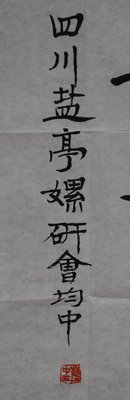 四川盐亭嫘研會均中